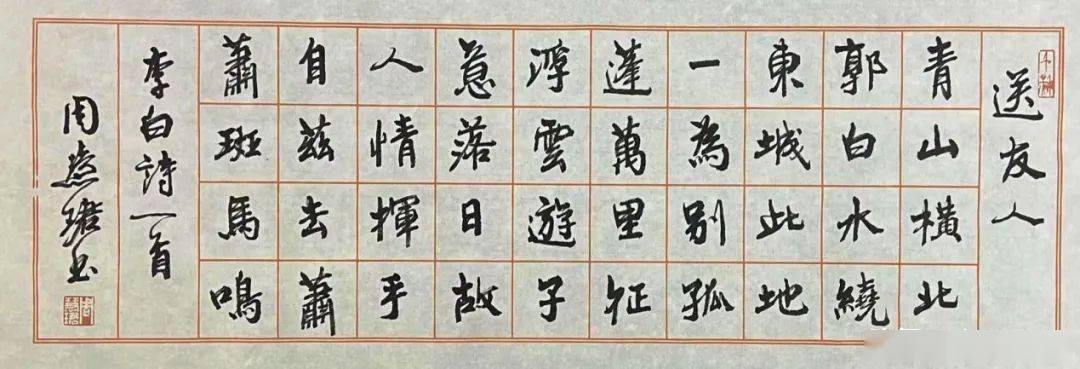 送友人
青山橫北
郭白水繞
東城此地
一為別孤
蓬萬里征
浮雲遊子
意落日故
人情揮手
自茲去蕭
蕭班馬鳴
李白詩一首
周慧珺书